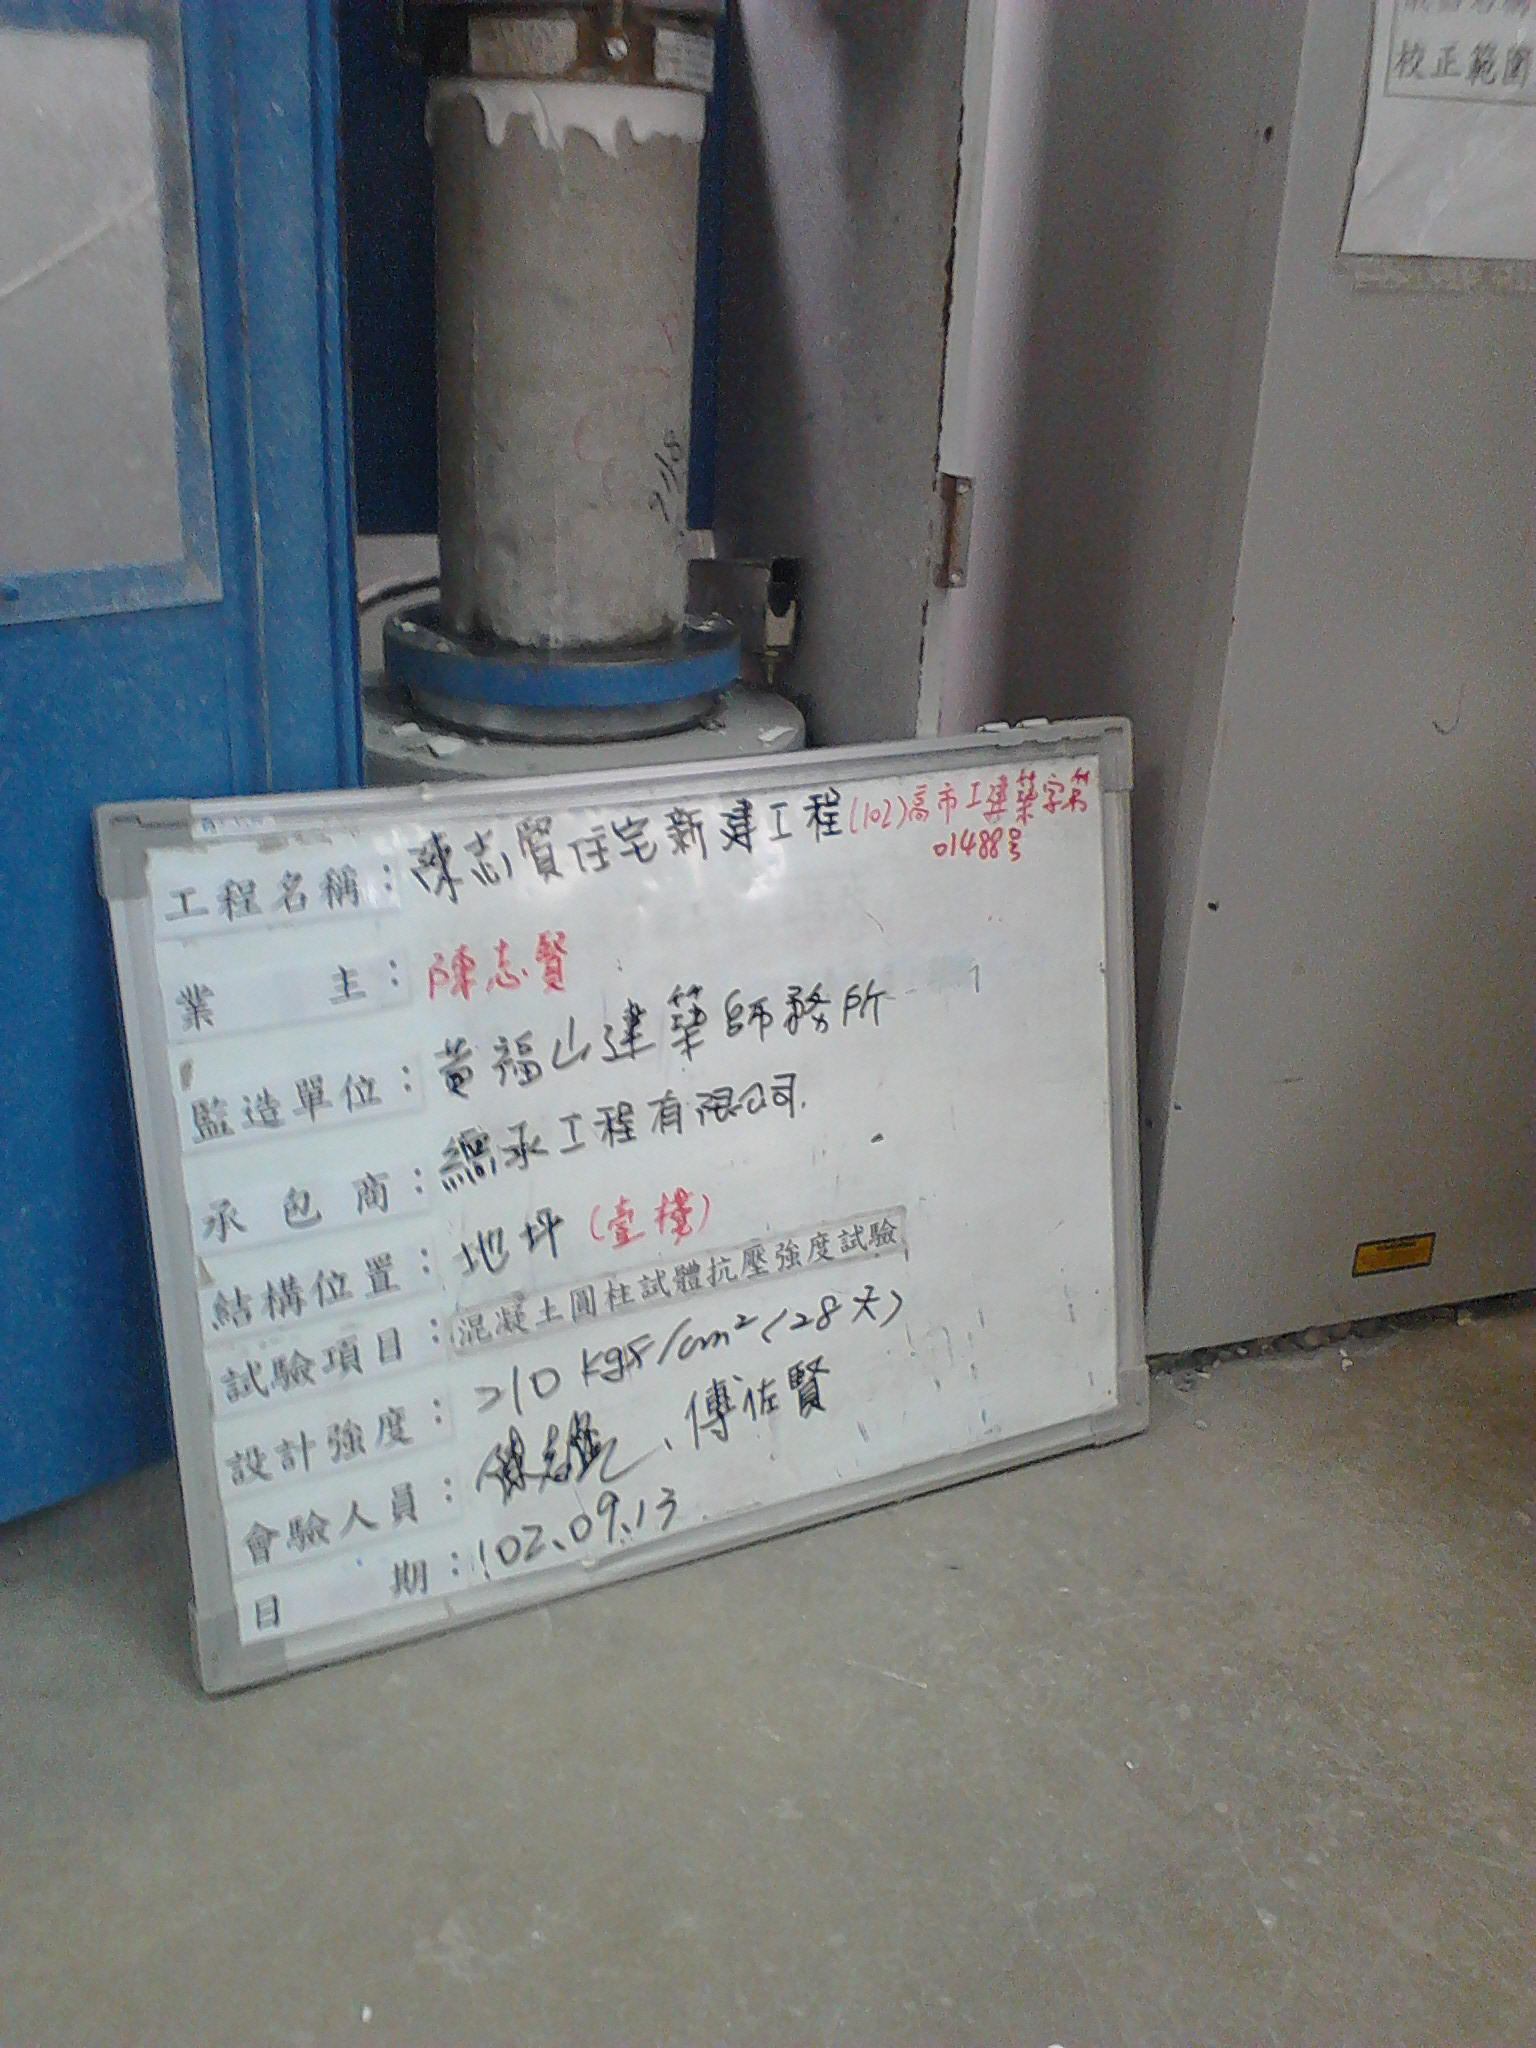 校正範圍
工程名稱：陳志賢住宅新建工程(102)高市工建築字第
01488号
業主：陳志賢
監造單位：黃福山建築師務所
承包商：承工程有限公司.
結構位置：地坪(壹樓)
試驗項目：混凝土圓柱試體抗壓強度試驗
設計強度：210 kgf/cm²(28天)
會驗人員：陳志、傅佐賢
日期：102.09.13